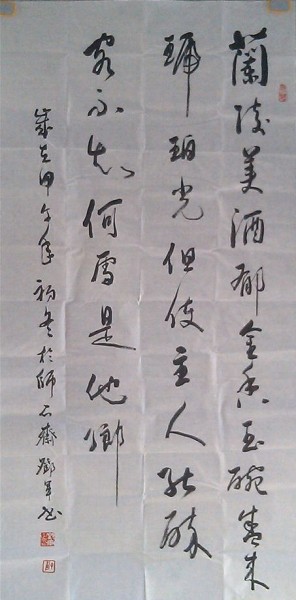 蘭陵美酒郁金香玉碗盛来
琥珀光但使主人能醉
客不知何處是他鄉
歲在甲午年初冬於師石齋鄧軍书